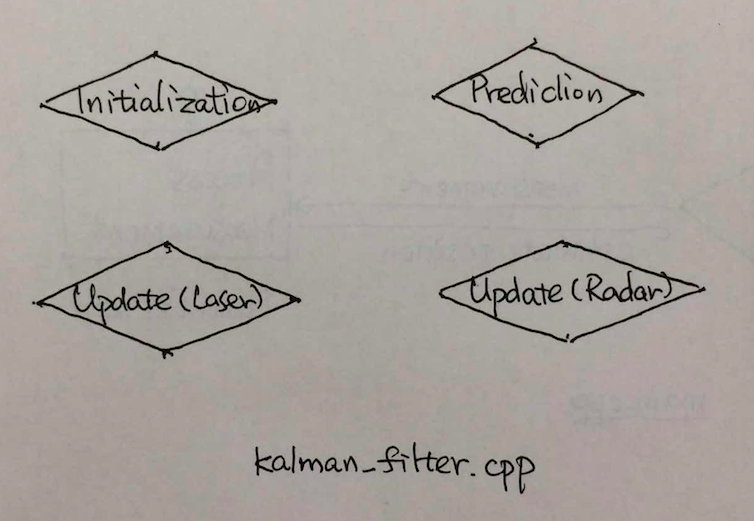 Initialization
Prediction
Update(Laser)
Update(Radar)
kalman_filter.cpp